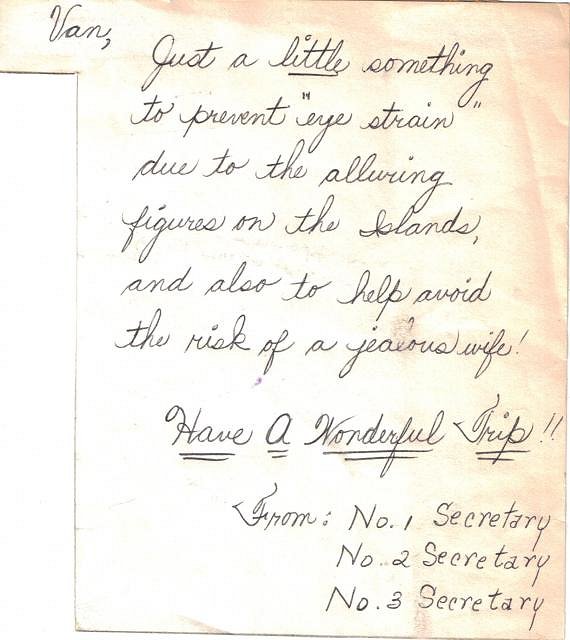 Van,
Just a little something
to prevent "eye strain"
due to the alluring
figures on the Islands,
and also to help avoid
the risk of a jealous wife!
Have A Wonderful Trip!!
From: No. 1 Secretary
No. 2 Secretary
No. 3 Secretary